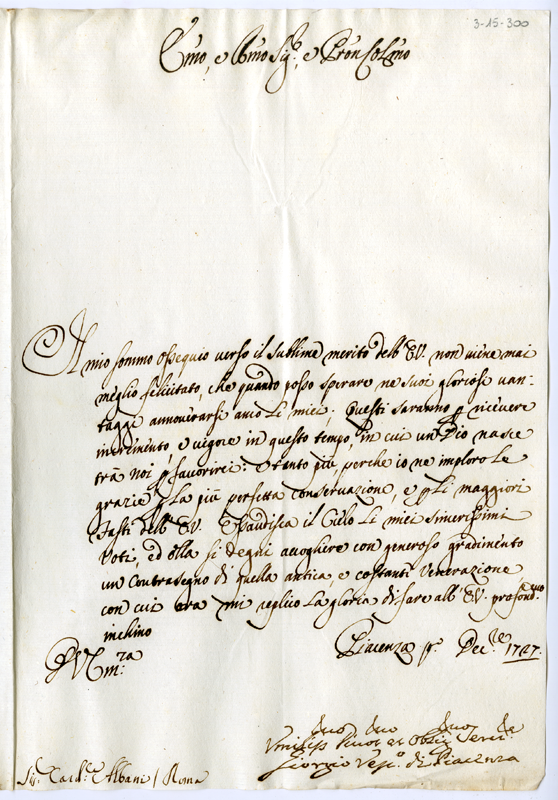 3-15-300
Emo, e Rmo Sig.r, e Pron Colmo
Il mio sommo ossequio verso il sublime merito dell' E.V. non viene mai
meglio felicitato, che quando posso sperare ne suoi gloriosi van-
taggi annoverarsi anco li miei; Questi saranno p ricevere
incremento, e vigore in questo tempo, in cui un Dio nasce
trà noi p favorirci: e tanto più, perche io ne imploro le
grazie p la più perfetta conservazione, e p li maggiori
fasti dell' E.V. Esaudisca il Cielo li miei sincerissimi
voti, ed ella si degni accogliere con generoso gradimento
un contrasegno di quella antica, e costante venerazione
con cui ora mi replico la gloria di fare all' E.V. profond.mo
inchino
Piacenza p.o Dec.re 1727.
Sig. Card.l Albani / Roma
Giorgio Vesc.o di Piacenza